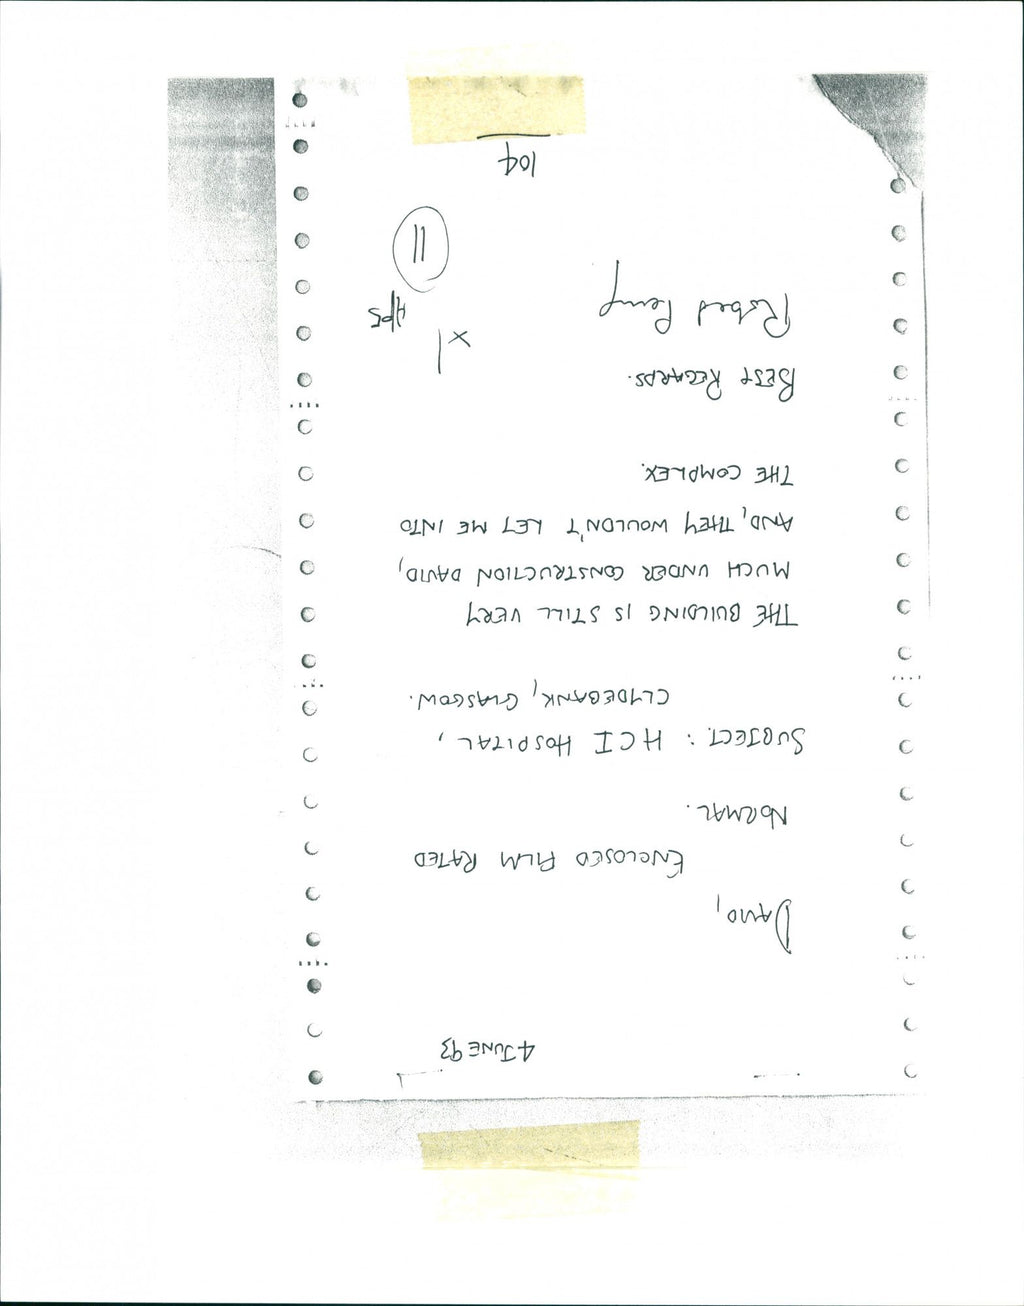 4 JUNE 93
DAVID,
ENCLOSED FILM RATED
NORMAL.
SUBJECT: HCI HOSPITAL,
CLYDEBANK, GLASGOW.
THE BUILDING IS STILL VERY
MUCH UNDER CONSTRUCTION DAVID,
AND, THEY WOULDN'T LET ME INTO
THE COMPLEX.
BEST REGARDS.
Robert Perry
x1
11
104